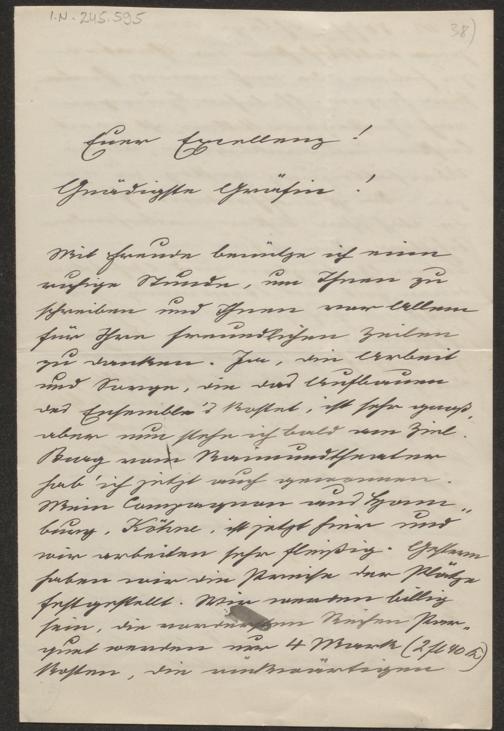 I.N. 245.595
38)
Euer Excellenz!
Gnädigste Gräfin!
Mit Freude benütze ich einen
ruhige Stunde, um Ihnen zu
schreiben und Ihnen vor Allem
für Ihre freundlichen Zeilen
zu danken. Ja, die Arbeit
und Sorge, die das Aufbauen
des Ensemble's kostet, ist sehr groß,
aber nun stehe ich bald am Ziel.
Burg vom Raimundtheater
hab' ich jetzt auch gewonnen.
Mein Compagnon aus Ham-
burg, Köhne, ist jetzt hier und
wir arbeiten sehr fleißig. Gestern
haben wir die Preise der Plätze
festgestellt. Wir werden billig
sein, die vordersten Reihen Par-
quet werden nur 4 Mark (2 fl 40 k)
kosten, die rückwärtigen